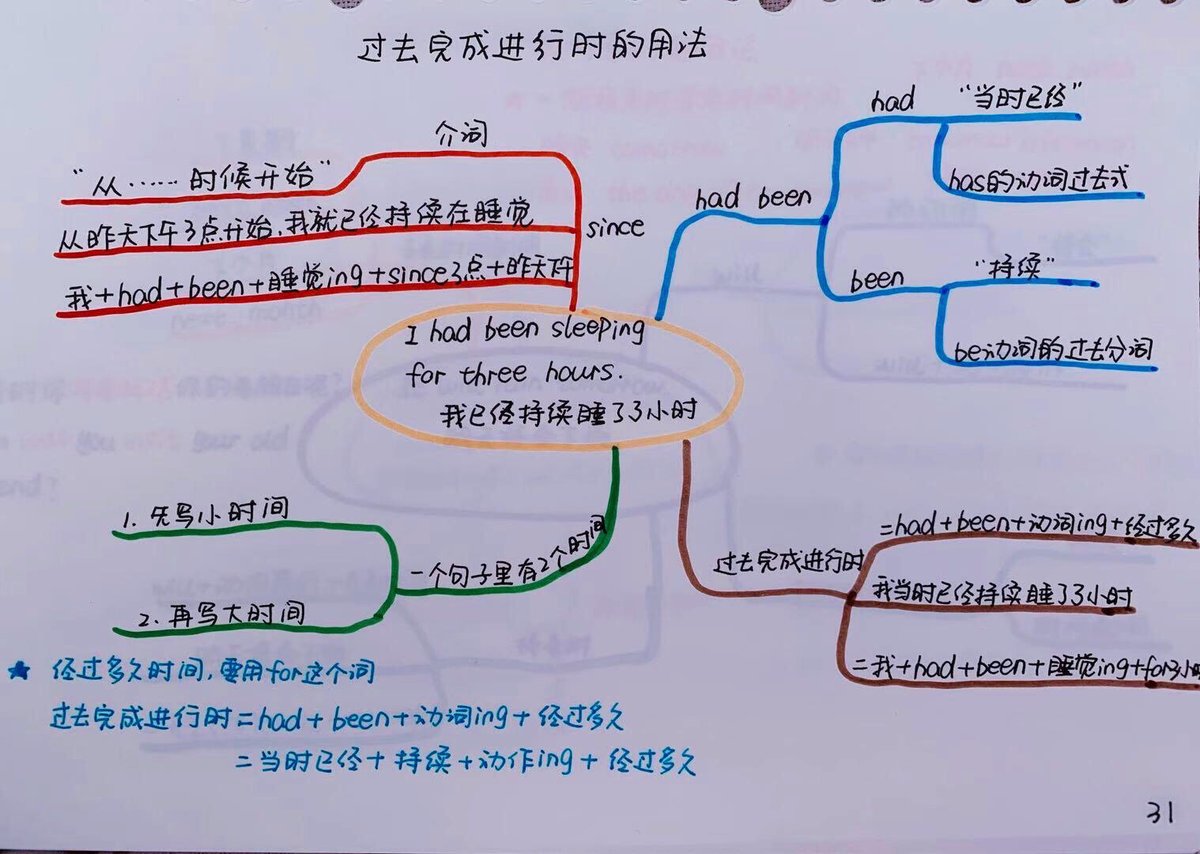 过去完成进行时的用法
介词
"从……时候开始"
从昨天下午3点开始,我就已经持续在睡觉
我+had+been+睡觉ing+since3点+昨天下午
since
had been
had
"当时已经"
has的动词过去式
been
"持续"
be动词的过去分词
I had been sleeping
for three hours.
我已经持续睡了3小时
1. 先写小时间
一个句子里有2个时间
2. 再写大时间
过去完成进行时
=had+been+动词ing+经过多久
我当时已经持续睡了3小时
=我+had+been+睡觉ing+for3小时
★ 经过多久时间,要用for这个词
过去完成进行时=had+been+动词ing+经过多久
=当时已经+持续+动作ing+经过多久
31